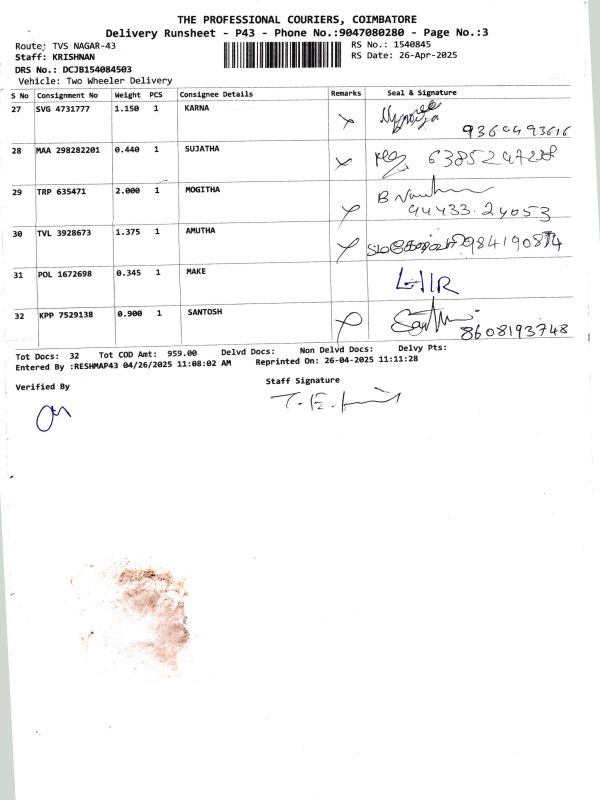 THE PROFESSIONAL COURIERS, COIMBATORE
Delivery Runsheet - P43 - Phone No.:9047080280 - Page No.:3
Route: TVS NAGAR-43 RS No.: 1540845
Staff: KRISHNAN RS Date: 26-Apr-2025
DRS No.: DCJB154084503
Vehicle: Two Wheeler Delivery
S No Consignment No Weight PCS Consignee Details Remarks Seal & Signature
27 SVG 4731777 1.150 1 KARNA
9360493616
28 MAA 298282201 0.440 1 SUJATHA
29 TRP 635471 2.000 1 MOGITHA B
94433.24053
30 TVL 3928673 1.375 1 AMUTHA
31 POL 1672698 0.345 1 MAKE
32 KPP 7529138 0.900 1 SANTOSH
8608193748
Tot Docs: 32 Tot COD Amt: 959.00 Delvd Docs: Non Delvd Docs: Delvy Pts:
Entered By :RESHMAP43 04/26/2025 11:08:02 AM Reprinted On: 26-04-2025 11:11:28
Verified By Staff Signature